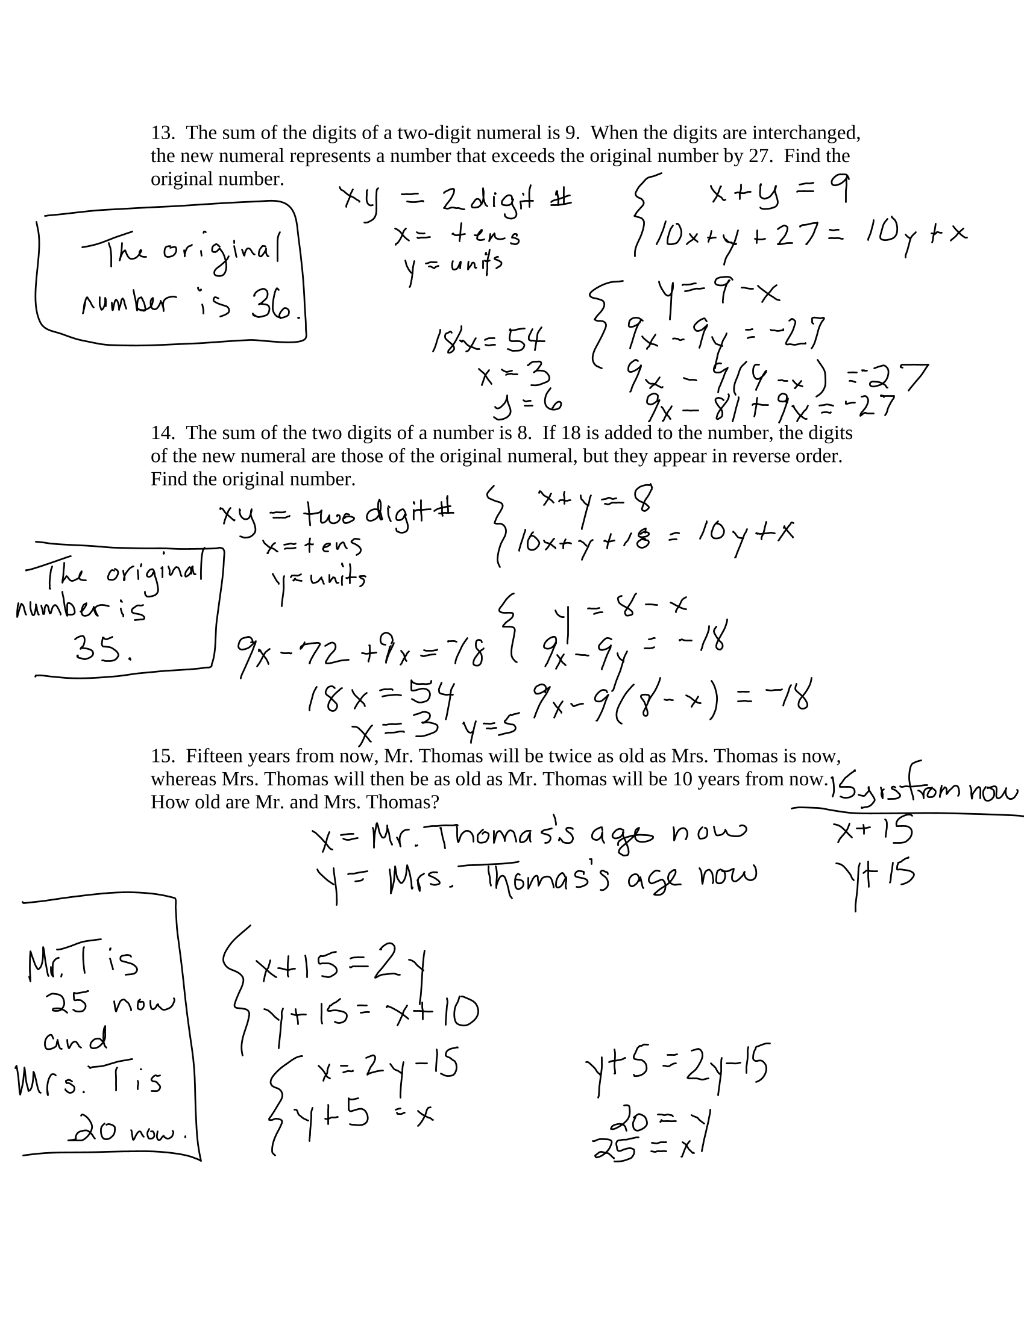 13. The sum of the digits of a two-digit numeral is 9. When the digits are interchanged,
the new numeral represents a number that exceeds the original number by 27. Find the
original number.
xy = 2 digit #
x = tens
y = units
x + y = 9
10x + y + 27 = 10y + x
The original
number is 36.
y = 9 - x
9x - 9y = -27
9x - 9(9 - x) = -27
9x - 81 + 9x = -27
18x = 54
x = 3
y = 6
14. The sum of the two digits of a number is 8. If 18 is added to the number, the digits
of the new numeral are those of the original numeral, but they appear in reverse order.
Find the original number.
xy = two digit #
x = tens
y = units
x + y = 8
10x + y + 18 = 10y + x
The original
number is
35.
y = 8 - x
9x - 9y = -18
9x - 9(8 - x) = -18
9x - 72 + 9x = -18
18x = 54
x = 3 y = 5
15. Fifteen years from now, Mr. Thomas will be twice as old as Mrs. Thomas is now,
whereas Mrs. Thomas will then be as old as Mr. Thomas will be 10 years from now.
How old are Mr. and Mrs. Thomas?
15 yrs from now
x = Mr. Thomas's age now
x + 15
y = Mrs. Thomas's age now
y + 15
Mr. T is
25 now
and
Mrs. T is
20 now.
x + 15 = 2y
y + 15 = x + 10
x = 2y - 15
y + 5 = x
y + 5 = 2y - 15
20 = y
25 = x